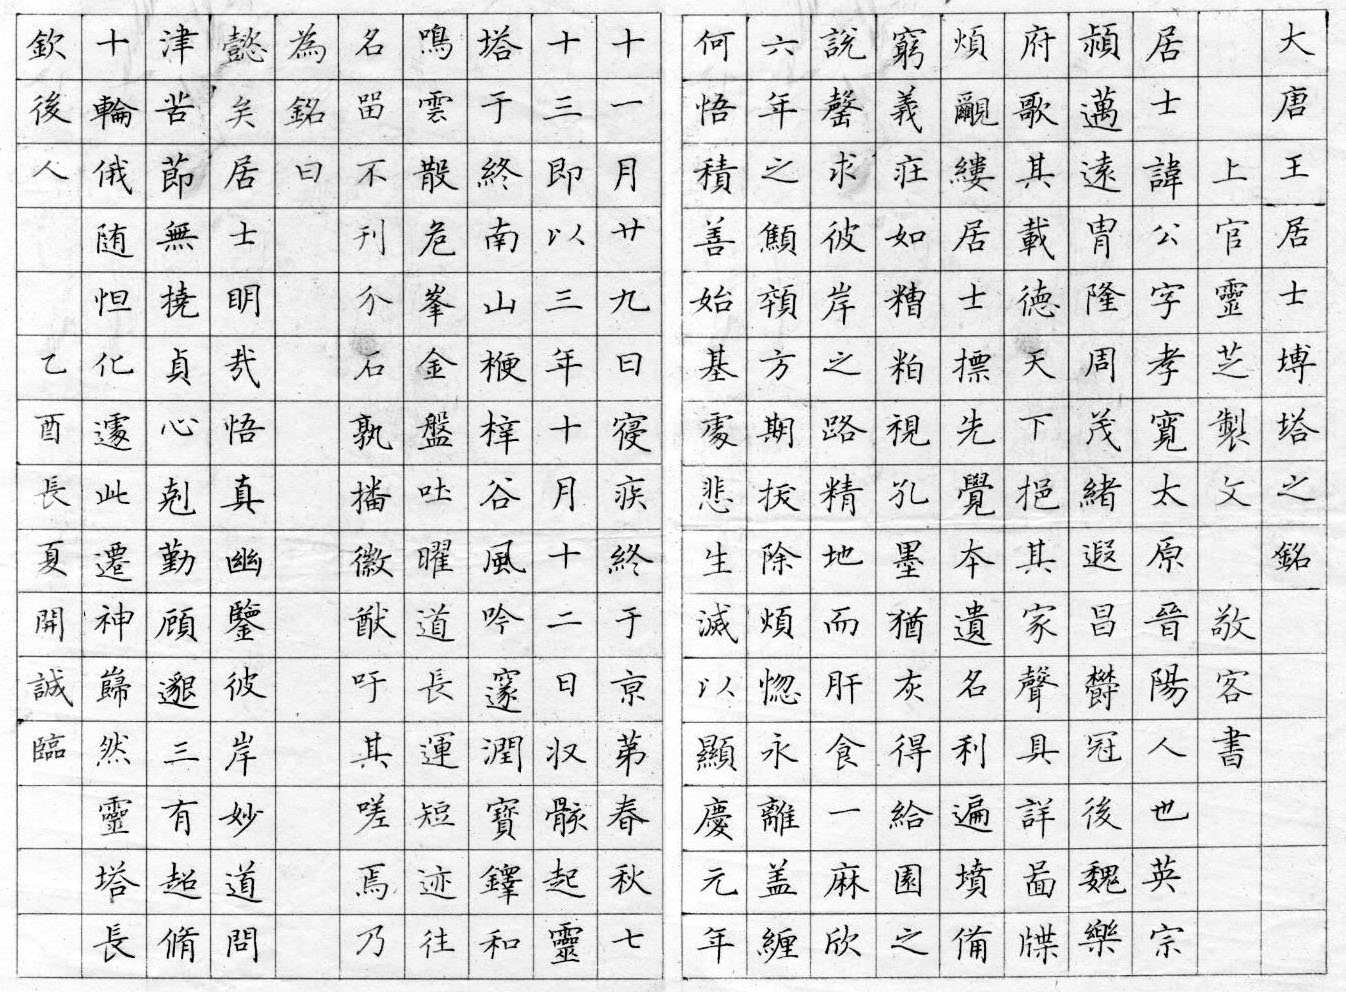 大唐王居士塼塔之銘
上官靈芝製文 敬客書
居士諱公字孝寬太原晉陽人也英宗
潁邁遠冑隆周茂緒遐昌欝冠後魏樂
府歌其載德天下挹其家聲具詳啚牒
煩覼縷居士摽先覺本遺名利遍墳備
窮義疰如糟粕視孔墨猶灰得給園之
說罄求彼岸之路精地而肝食一麻欣
六年之鷦顇方期拔除煩惚永離盖纏
何悟積善始基處悲生滅以顯慶元年
十一月廿九日寑疾終于亰苐春秋七
十三即以三年十月十二日収骸起靈
塔于終南山梗梓谷風吟邃潤寶鐸和
鳴雲散危峯金盤吐曜道長運短迹往
名留不刊介石孰播徽猷吁其嗟焉乃
為銘曰
懿矣居士明哉悟真幽鑒彼岸妙道問
津苦莭無撓貞心剋勤顾邈三有超脩
十輪俄随怛化遽此遷神巋然靈塔長
欽後人 乙酉長夏開誠臨